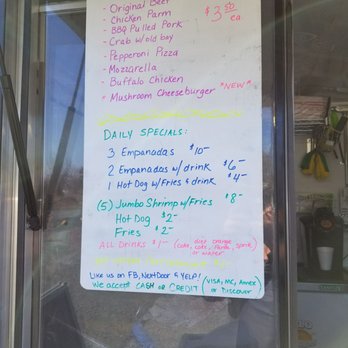 - Original Beef
- Chicken Parm
- BBQ Pulled Pork
$3.50 ea
- Crab w/old bay
- Pepperoni Pizza
- Mozzarella
- Buffalo Chicken
* Mushroom Cheeseburger *NEW*
DAILY SPECIALS:
3 Empanadas $10-
2 Empanadas w/ drink $6-
1 Hot Dog w/Fries & drink $4-
(5) Jumbo Shrimp w/Fries $8-
Hot Dog $2-
Fries $2-
ALL DRINKS $1- (coke, diet coke, orange Fanta, Sprite or water)
Like us on FB, NextDoor & YELP!
We accept CASH or CREDIT (VISA, MC, Amex or Discover)